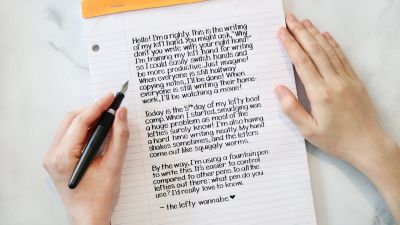 Hello! I'm a righty. This is the writing
of my left hand. You might ask, "Why
don't you write with your right hand?"
I'm training my left hand for writing
so I could easily switch hands and
be more productive. Just imagine!
When everyone is still halfway
copying notes, I'll be done! When
everyone is still writing their home-
work, I'll be watching a movie!
Today is the 5th day of my lefty boot
camp. When I started, smudging was
a huge problem as most of the
lefties surely know! I'm also having
a hard time writing neatly. My hand
shakes sometimes, and the letters
come out like squiggly worms.
By the way, I'm using a fountain pen
to write this. It's easier to control
compared to other pens. To all the
lefties out there: what pen do you
use? I'd really love to know.
- the lefty wannabe ♥